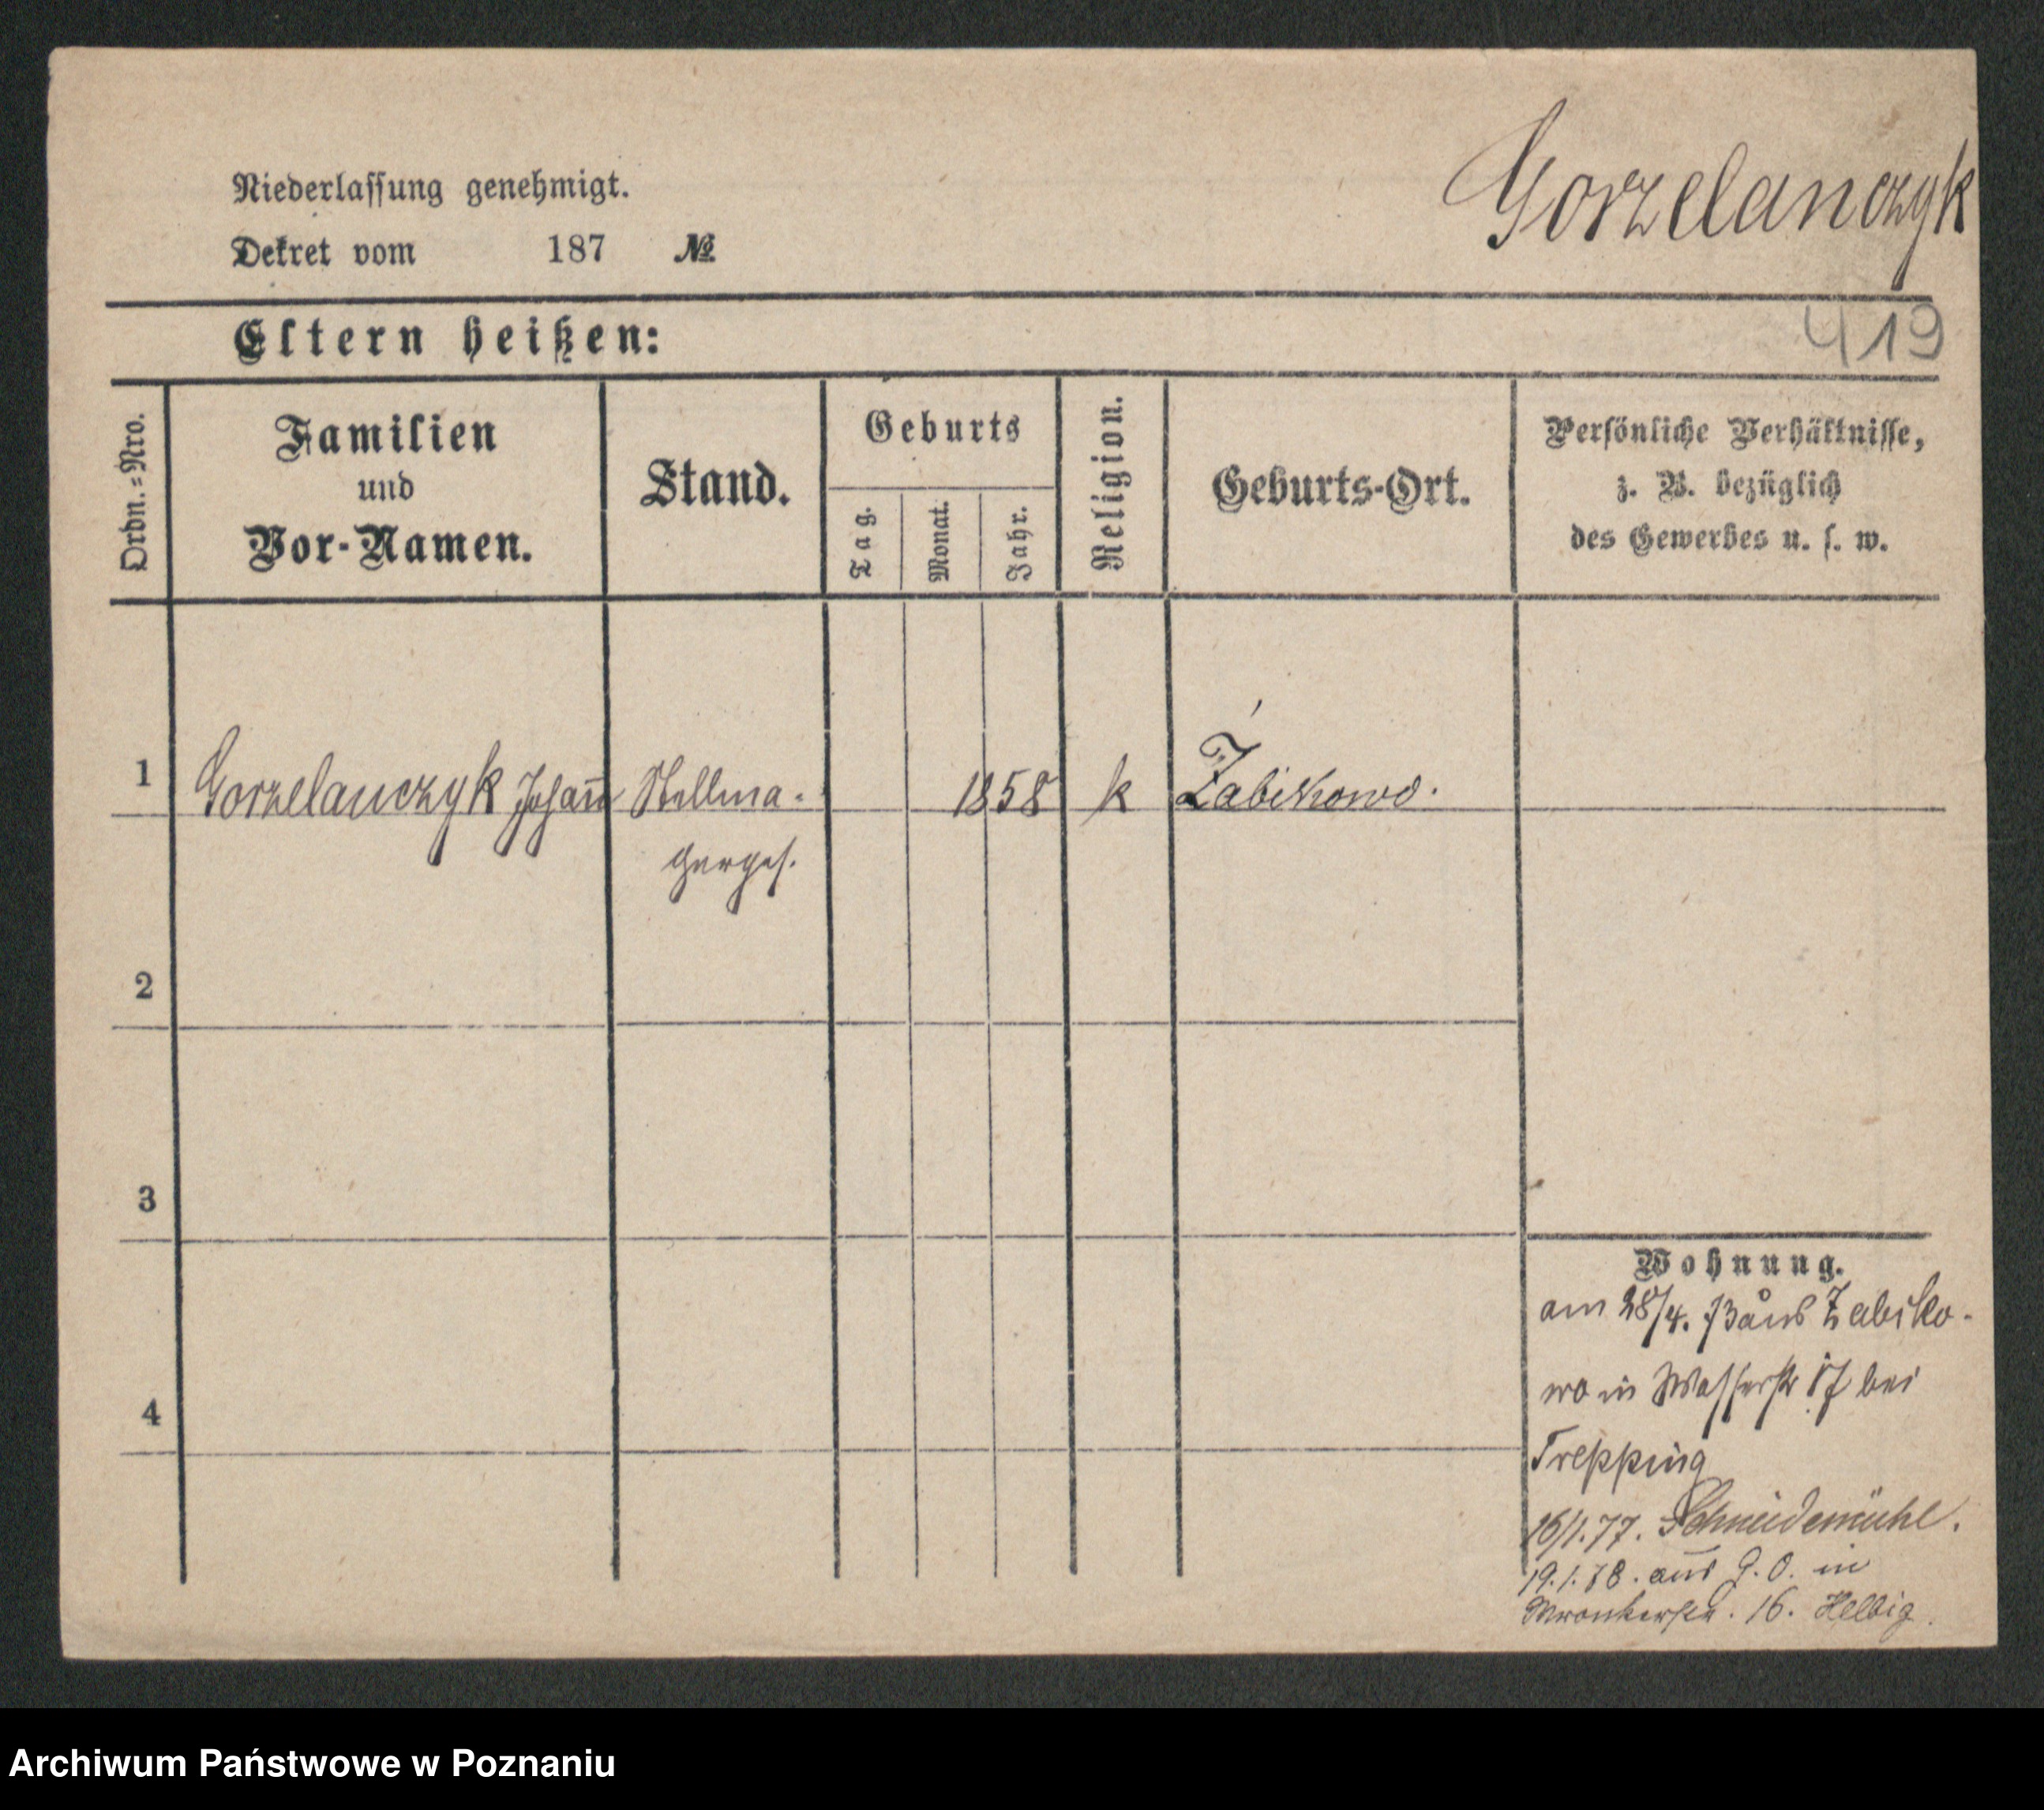 Gorzelanczyk
Niederlassung genehmigt.
Dekret vom 187 №
Eltern heißen:
419
Ordn.=Nro.
Familien
und
Vor-Namen.
Stand.
Geburts
Tag.
Monat.
Jahr.
Religion.
Geburts-Ort.
Persönliche Verhältnisse,
z. B. bezüglich
des Gewerbes u. s. w.
1 Gorzelanczyk Johann Stellma- 1858 k Żabikowo.
cherges.
2
3
4
Wohnung.
am 28/4. 73 aus Zabiko-
wo in Wasserstr 17 bei
Trepping
16/1.77. Schneidemühl.
19.1.78. aus G. O. in
Wronkerstr. 16. Helbig.
Archiwum Państwowe w Poznaniu